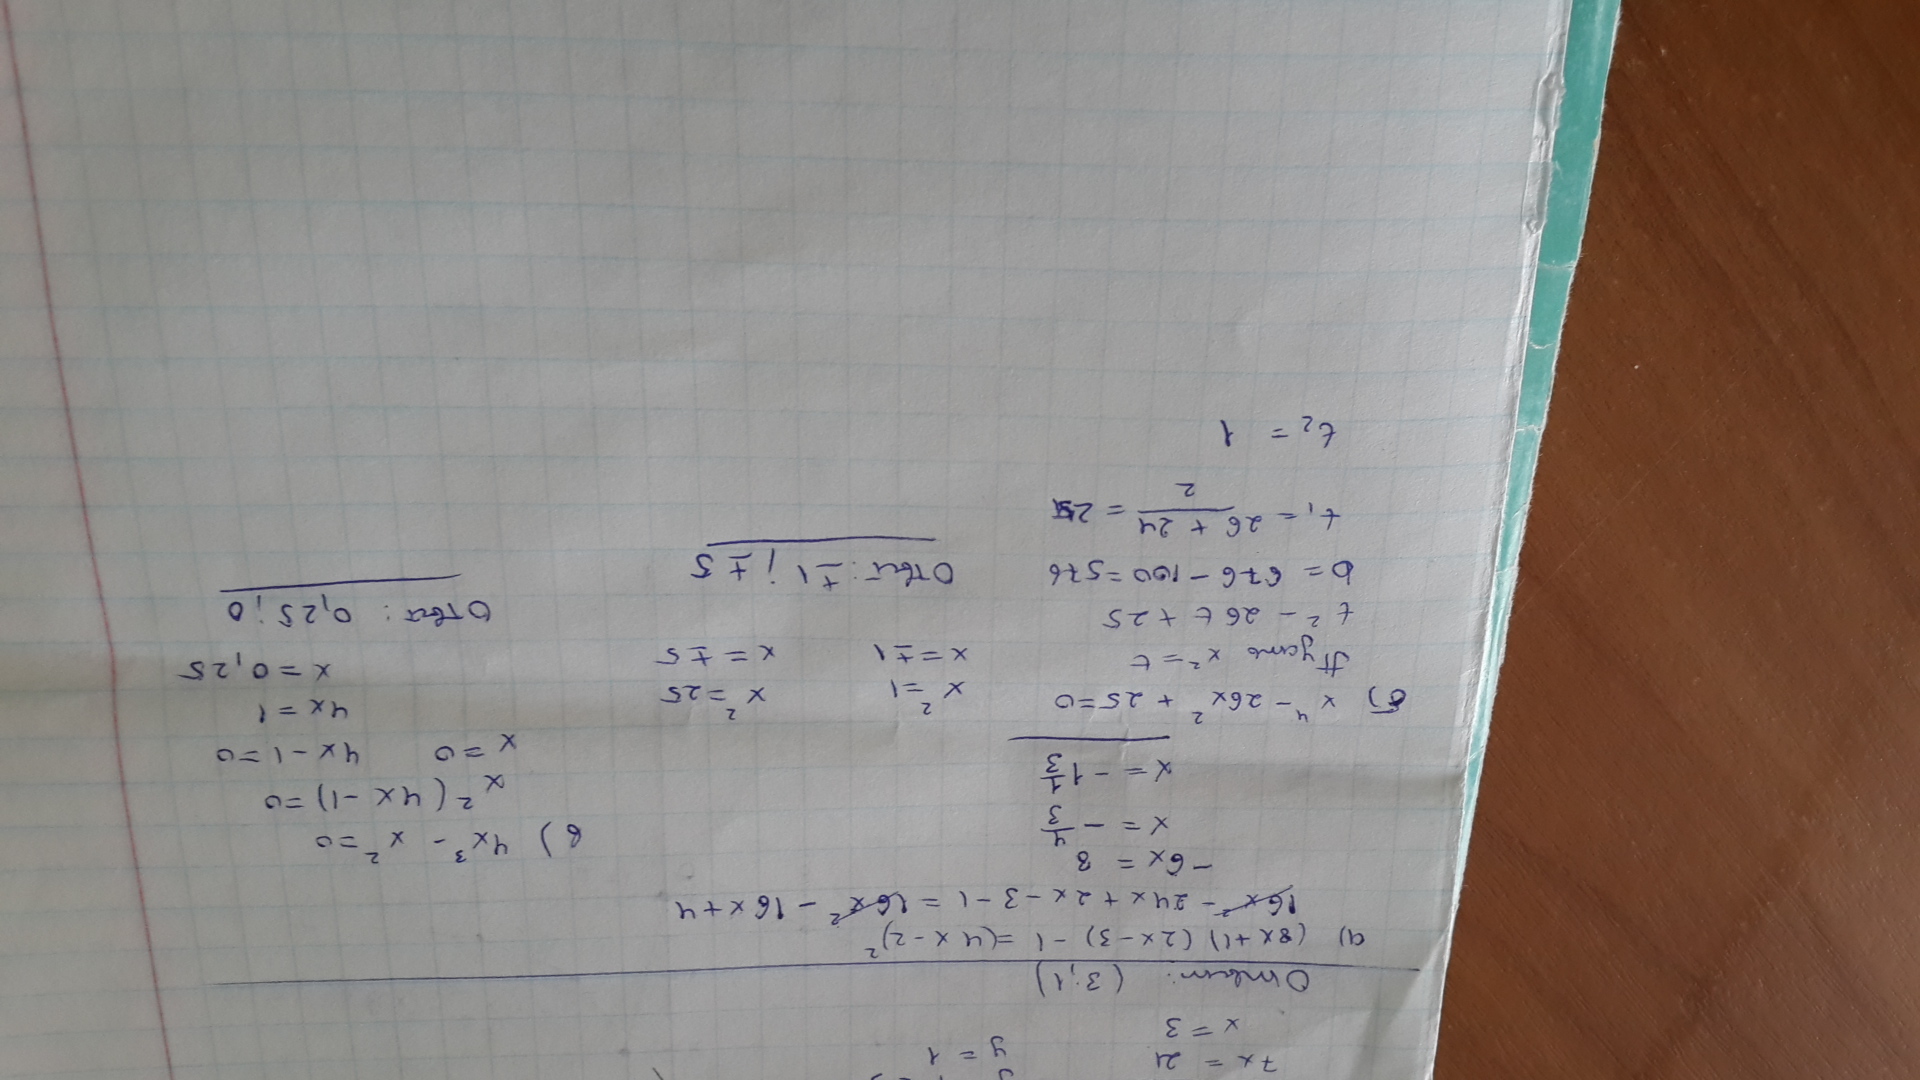 7x = 21
x = 3
y = 1
Ответ: (3;1)
а) (8x+1) (2x-3) -1 = (4x-2)²
16x² - 24x + 2x - 3 - 1 = 16x² - 16x + 4
-6x = 8
x = -4/3
x = -1 1/3
б) x⁴ - 26x² + 25 = 0
Пусть x² = t
t² - 26t + 25
D = 676 - 100 = 576
t₁ = (26 + 24)/2 = 25
t₂ = 1
x² = 1 x² = 25
x = ±1 x = ±5
Ответ: ±1; ±5
в) 4x³ - x² = 0
x² (4x - 1) = 0
x = 0 4x - 1 = 0
4x = 1
x = 0,25
Ответ: 0,25; 0